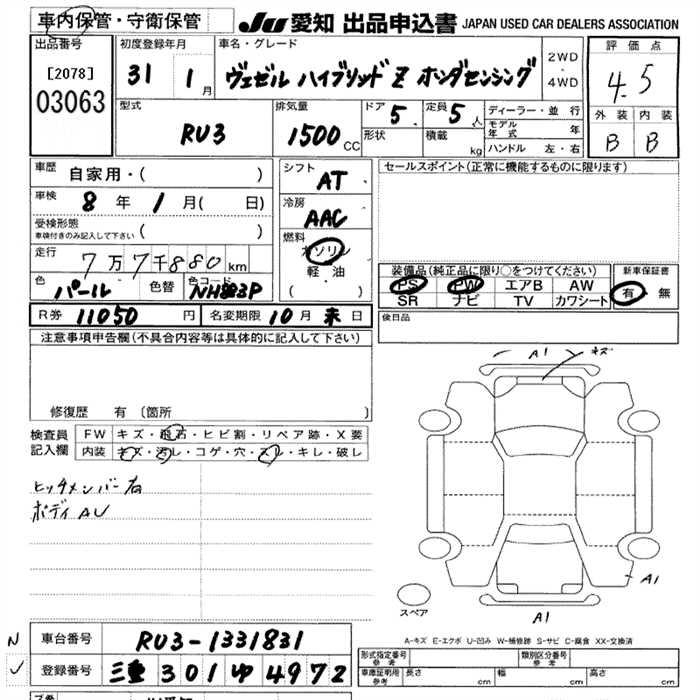 車内保管・守衛保管
JU 愛知 出品申込書 JAPAN USED CAR DEALERS ASSOCIATION
出品番号
[2078]
03063
初度登録年月
31 年 1 月
車名・グレード
ヴェゼル ハイブリッド Z ホンダセンシング
2WD
4WD
評価点
4.5
外装 内装
B B
型式
RU3
排気量
1500 CC
ドア 5
形状
定員 5 人
積載 kg
ディーラー・並行
モデル年式 年
ハンドル 左・右
車歴 自家用・( )
車検 8 年 1 月( 日)
受検形態
車検付きのみ記入して下さい ( )
走行 7万7千880 km
色 パール 色替 色コード NH883P
シフト AT
冷房 AAC
燃料 ガソリン
軽・油
・( )
セールスポイント(正常に機能するものに限ります)
装備品(純正品に限り○をつけてください)
PS PW エアB AW
SR ナビ TV カワシート
新車保証書
有・無
R券 11050 円 名変期限 10月末日
後日品
注意事項申告欄(不具合内容等は具体的に記入して下さい)
修復歴 有 〔箇所 〕
検査員記入欄
FW キズ・飛石・ヒビ割・リペア跡・X要
内装 キズ・汚レ・コゲ・穴・スレ・キレ・破レ
ヒッチメンバー右
ボディAU
A1 キズ
A1
A1
スペア
A-キズ E-エクボ U-凹み W-補修跡 S-サビ C-腐食 XX-交換済
N
車台番号 RU3-1331831
登録番号 三重 301 ゆ 4972
形式指定番号 参考
類別区分番号 参考
車庫証明用 参考 長さ cm 幅 cm 高さ cm